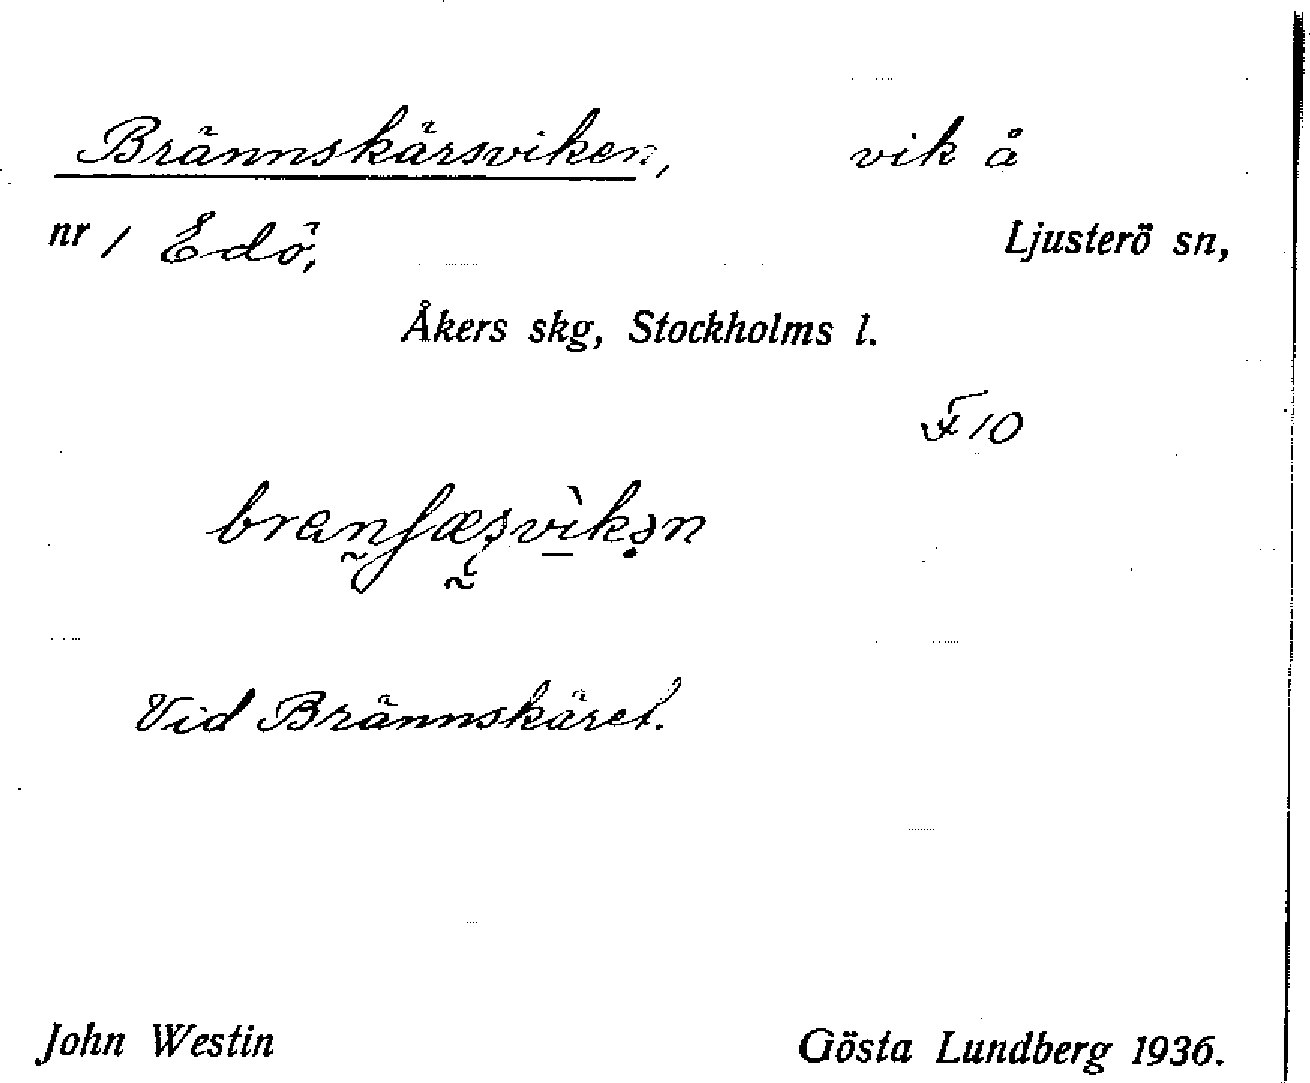 Brännskärsviken, vik å
nr 1 Edö, Ljusterö sn,
Åkers skg, Stockholms l.
F 10
Vid Brännskäret.
John Westin Gösta Lundberg 1936.